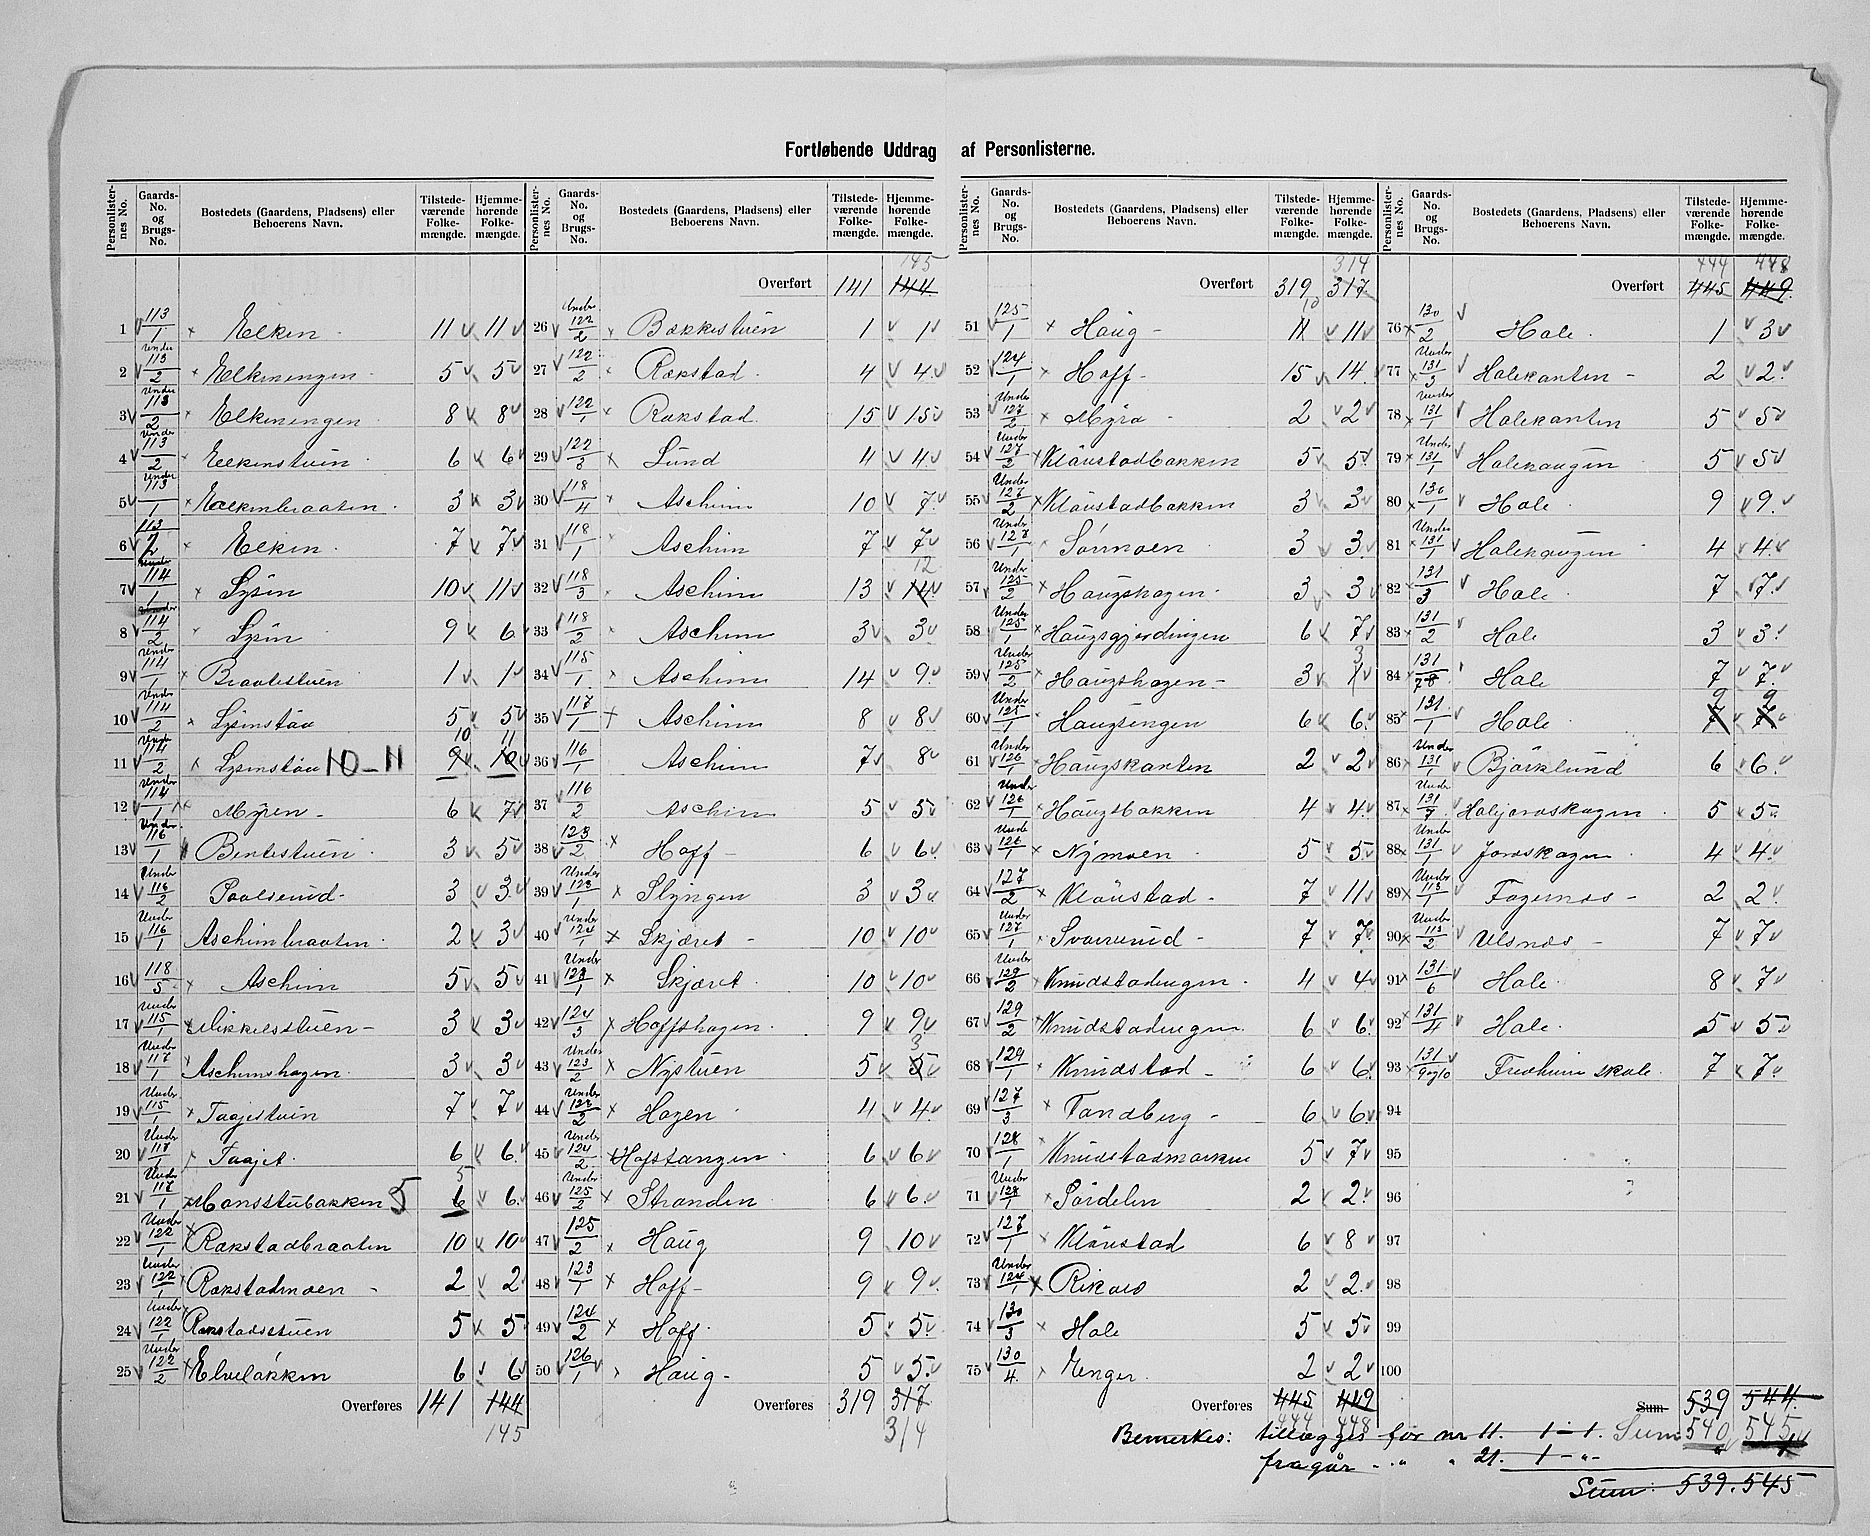 Fortløbende Uddrag af Personlisterne.
Personlister- nes No. Gaards-No. og Brugs-No. Bostedets (Gaardens, Pladsens) eller Beboerens Navn. Tilstede-værende Folke-mængde. Hjemme-hørende Folke-mængde.
1 113/1 Elken 11 11
2 Under 113/2 Elkenengen 5 5
3 Under 113/2 Elkenengen 8 8
4 Under 113/2 Elkenstuen 6 6
5 Under 113/1 Elkenbraaten 3 3
6 113/2 Elken 7 7
7 Under 114/1 Lysen 10 11
8 114/2 Lysen 9 6
9 Under 114/1 Braatestuen 1 1
10 Under 114/2 Lysenstøa 5 5
11 Under 114/2 Lysenstøa 10-11 9 10 10 11
12 Under 114/1 Myren 6 7
13 Under 116/1 Bentestuen 3 5
14 Under 116/2 Paalserud 3 3
15 Under 116/1 Aschimbraaten 2 3
16 118/5 Aschim 5 5
17 Under 115/1 Mikkelsstuen 3 3
18 Under 117/1 Aschimshagen 3 3
19 Under 115/1 Taajestuen 7 7
20 Under 117/1 Taajet 6 6
21 Under 117/1 Monsstubakken 5 6 5 6
22 Under 122/1 Rækstadbraaten 10 10
23 Under 122/1 Rækstadmoen 2 2
24 Under 122/1 Rækstadstuen 5 5
25 Under 122/2 Elveløkken 6 6
Overføres 141 144 145
Personlister- nes No. Gaards-No. og Brugs-No. Bostedets (Gaardens, Pladsens) eller Beboerens Navn. Tilstede-værende Folke-mængde. Hjemme-hørende Folke-mængde.
Overført 141 144 145
26 Under 122/2 Bækkestuen 1 1
27 122/2 Rækstad 4 4
28 122/1 Rækstad 15 15
29 122/3 Lund 4 4
30 118/4 Aschim 10 7
31 118/1 Aschim 7 7
32 118/3 Aschim 13 14 12
33 118/2 Aschim 3 3
34 118/1 Aschim 14 9
35 117/1 Aschim 8 8
36 116/1 Aschim 7 8
37 116/2 Aschim 5 5
38 123/2 Hoff 6 6
39 Under 123/1 Slyngen 3 3
40 Under 124/1 Skjæret 10 10
41 Under 123/1 Skjæret 10 10
42 124/3 Hoffshagen 9 9
43 Under 123/2 Nystuen 5 5 3
44 Under 123/2 Hagen 4 4
45 Under 124/2 Hofstangen 6 6
46 Under 125/2 Stranden 6 6
47 125/2 Haug 9 10
48 123/1 Hoff 9 9
49 124/2 Hoff 5 5
50 126/1 Haug 5 5
Overføres 319 317 314
Personlister- nes No. Gaards-No. og Brugs-No. Bostedets (Gaardens, Pladsens) eller Beboerens Navn. Tilstede-værende Folke-mængde. Hjemme-hørende Folke-mængde.
Overført 319 317 314
51 125/1 Haug 11 10 11
52 124/1 Hoff 15 14
53 Under 127/2 Myra 2 2
54 Under 127/2 Klaustadbakken 5 5
55 Under 127/2 Klaustadbakken 3 3
56 Under 127/1 Sørmoen 3 3
57 Under 125/2 Haugshagen 3 3
58 Under 125/1 Haugsgjerdingen 6 7
59 Under 125/2 Haugshagen 3 1 3
60 Under 125/1 Haugsengen 6 6
61 Under 126/1 Haugskanten 2 2
62 Under 126/1 Haugsbakken 4 4
63 Under 126/1 Nymoen 5 5
64 127/2 Klaustad 7 11
65 Under 127/1 Svarerud 7 7
66 Under 129/2 Knudstadengen 4 4
67 129/2 Knudstadengen 6 6
68 129/1 Knudstad 6 6
69 127/3 Tandberg 6 6
70 128/1 Knudstadmarken 5 7
71 Under 128/1 Sørdelen 2 2
72 127/1 Klaustad 6 8
73 Under 124/1 Rikard 2 2
74 130/3 Hole 5 5
75 130/4 Enger 2 2
Overføres 445 449 444 448
Personlister- nes No. Gaards-No. og Brugs-No. Bostedets (Gaardens, Pladsens) eller Beboerens Navn. Tilstede-værende Folke-mængde. Hjemme-hørende Folke-mængde.
Overført 445 449 444 448
76 130/2 Hole 1 3
77 Under 131/3 Holekanten 2 2
78 Under 131/1 Holekanten 5 5
79 Under 131/1 Holehaugen 5 5
80 130/1 Hole 9 9
81 Under 131/1 Holehaugen 4 4
82 131/3 Hole 7 7
83 131/2 Hole 3 3
84 131/78 Hole 7 7
85 131/1 Hole 7 7 9 9
86 Under 131/1 Bjørklund 6 6
87 Under 131/7 Holejordskagen 5 5
88 Under 131/1 Jordskagen 4 4
89 Under 113/1 Fagernæs 2 2
90 Under 113/2 Ulsnæs 7 7
91 131/6 Hole 8 7
92 131/4 Hole 5 5
93 131/9og10 Fredheim skole 7 7
94
95
96
97
98
99
100
Sum 539 544
Bemerkes: tillægges for nr 11. 1 - 1. Sum 540 545
fragår " " 21. 1 - "
Sum: 539. 545